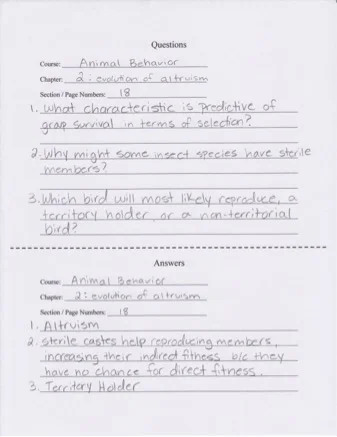 Questions
Course: Animal Behavior
Chapter: 2: evolution of altruism
Section / Page Numbers: 18
1. What characteristic is predictive of
grop survival in terms of selection?
2. Why might some insect species have sterile
members?
3. Which bird will most likely reproduce, a
territory holder, or a non-territorial
bird?
Answers
Course: Animal Behavior
Chapter: 2: evolution of altruism
Section / Page Numbers: 18
1. Altruism
2. sterile castes help reproducing members,
increasing their indirect fitness b/c they
have no chance for direct fitness.
3. Territory Holder